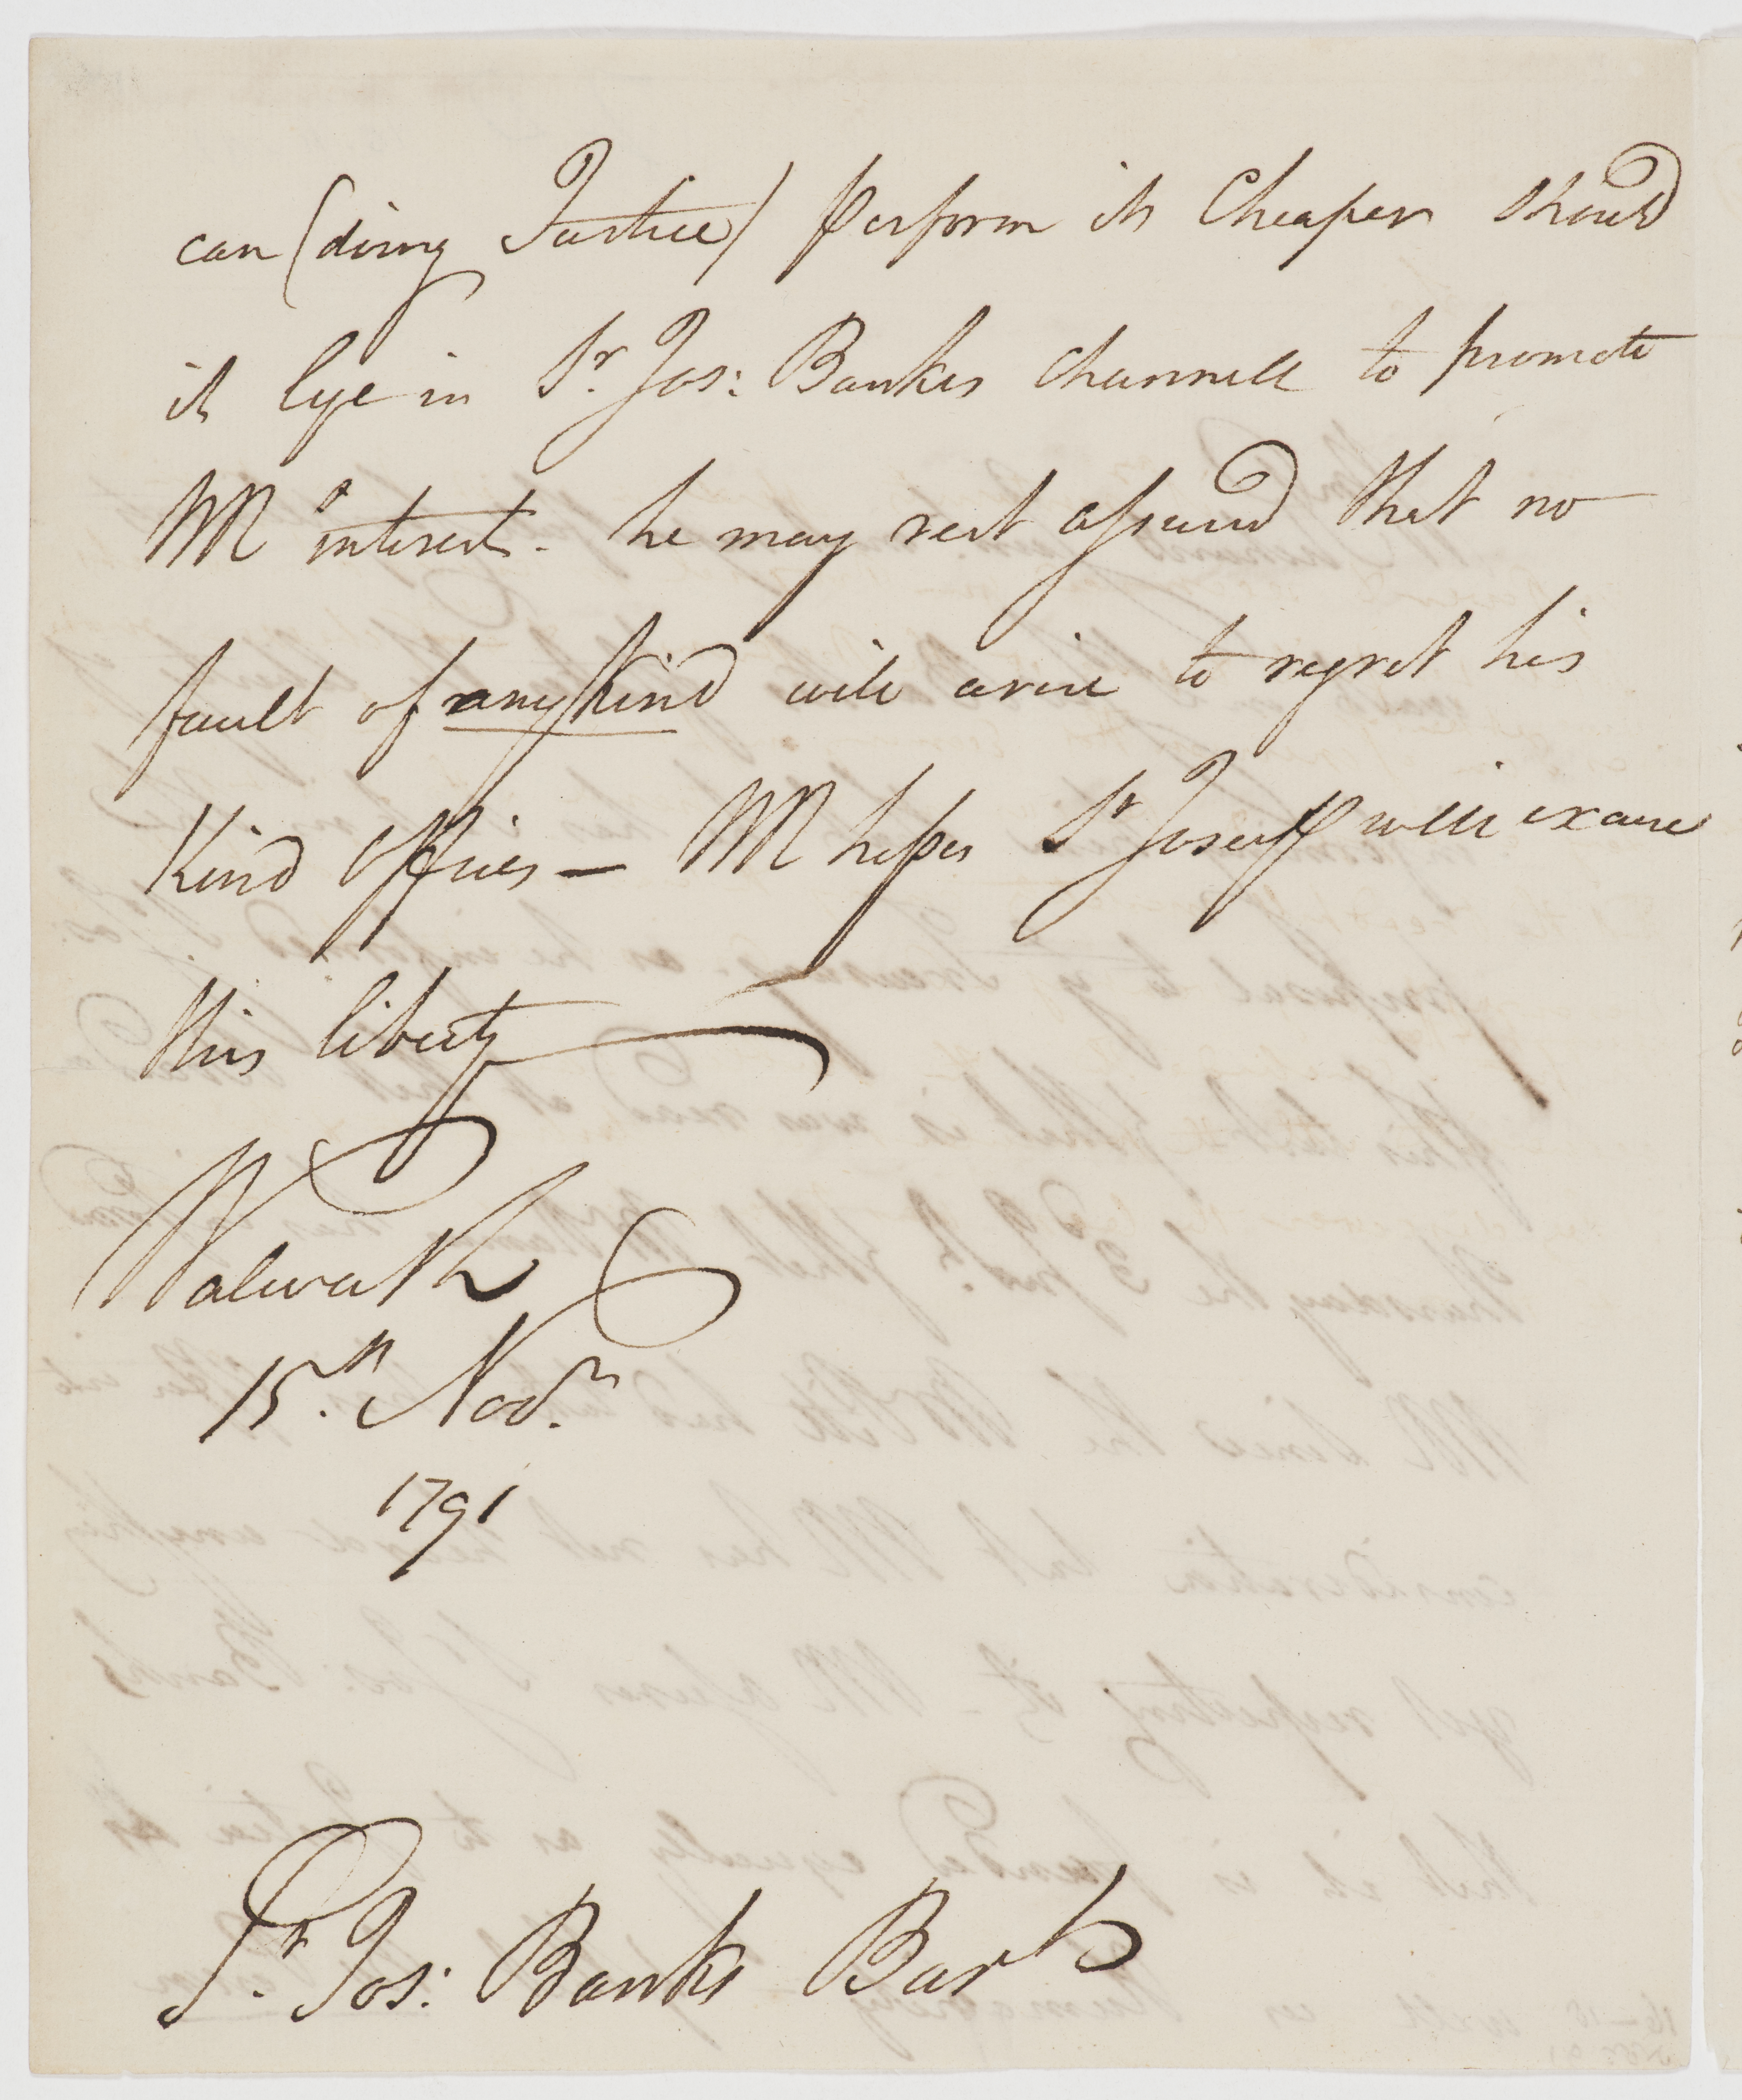 can (doing Justice) perform it Cheaper should
it lye in Sr. Jos: Bankes Channell to promote
Ms interest - he may rest assured that no
fault of any kind will arise to regret his
Kind Offices — M hopes Sr Joseph will excuse
this liberty
Walworth
15th. Novr.
1791
Sr. Jos: Banks Bart